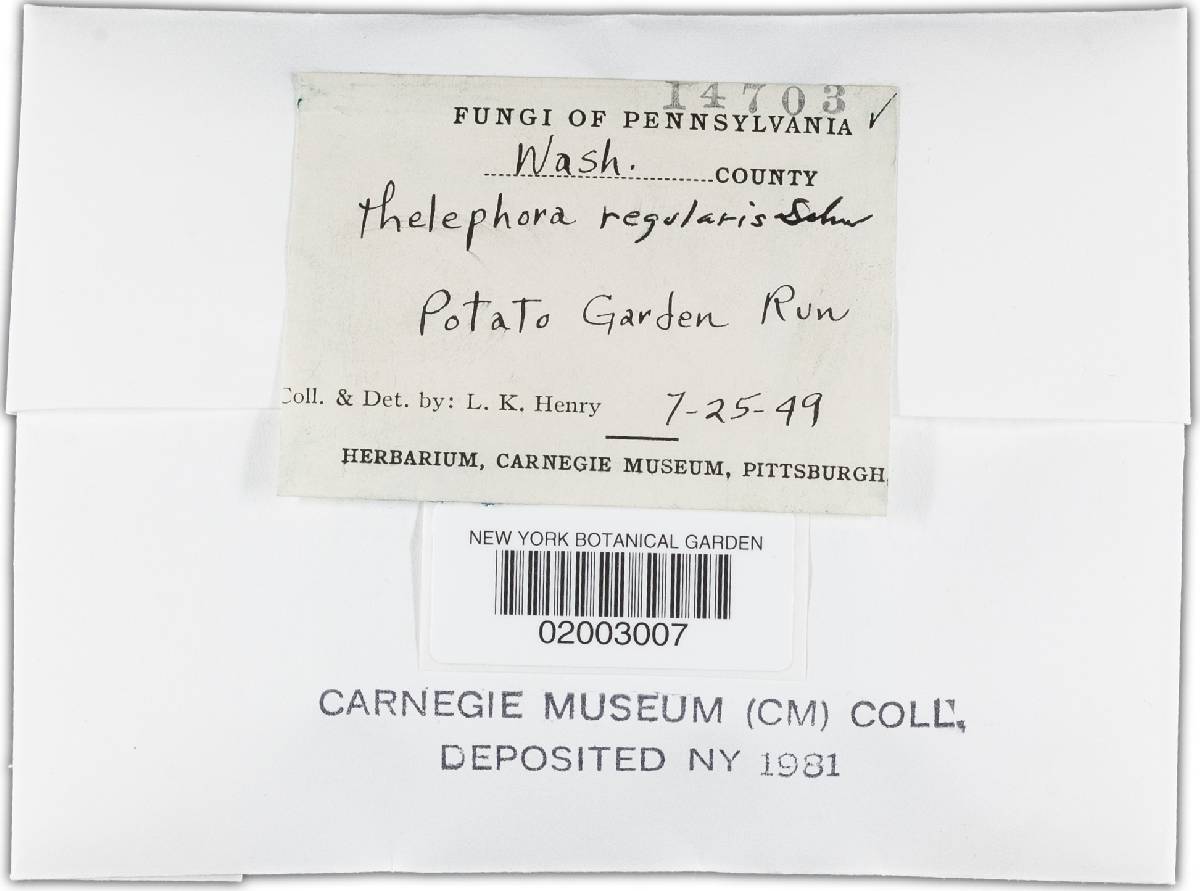 14703
FUNGI OF PENNSYLVANIA ✓
Wash. COUNTY
Thelephora regularis Schw
Potato Garden Run
Coll. & Det. by: L. K. Henry 7-25-49
HERBARIUM, CARNEGIE MUSEUM, PITTSBURGH,
NEW YORK BOTANICAL GARDEN
02003007
CARNEGIE MUSEUM (CM) COLL,
DEPOSITED NY 1981